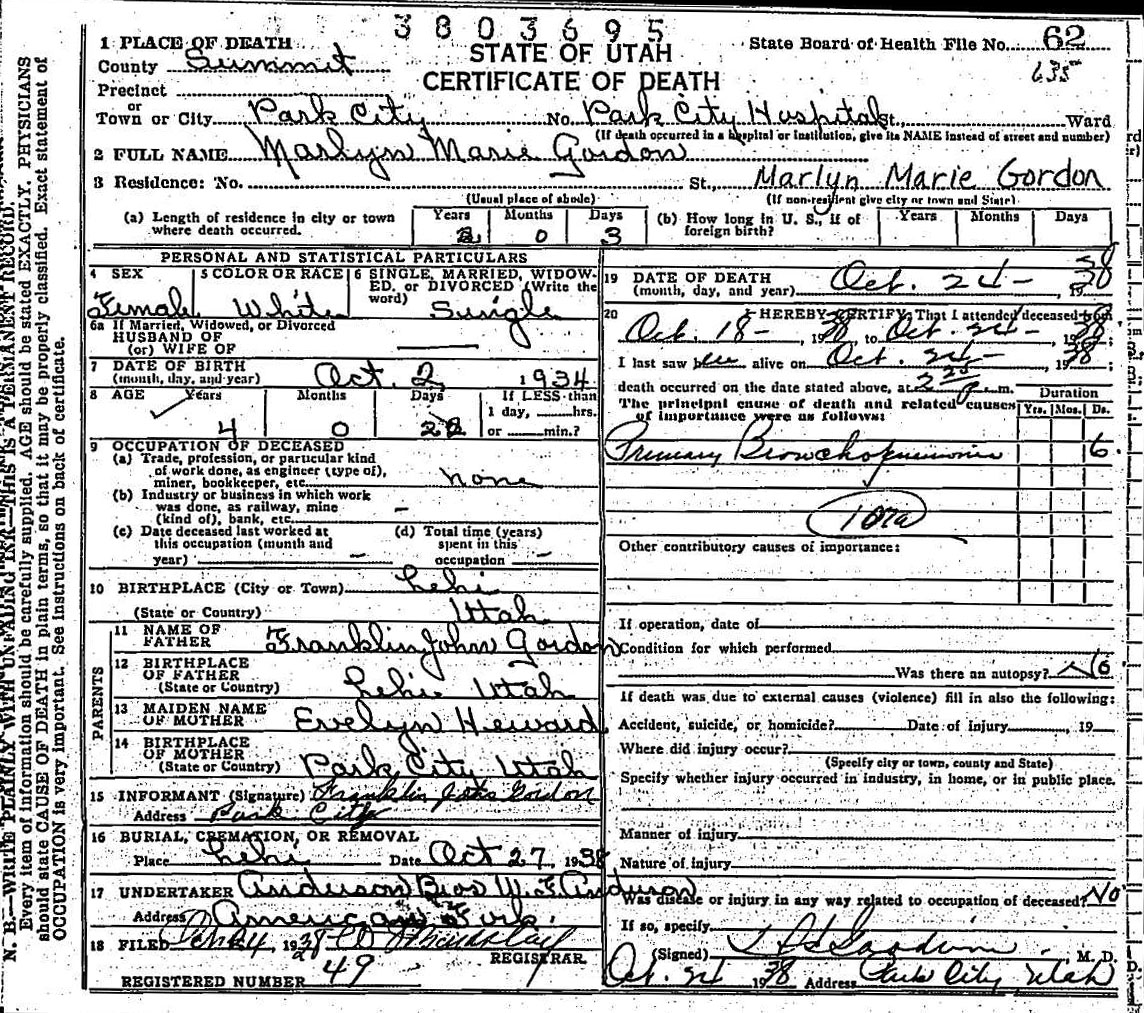 3803695
1 PLACE OF DEATH
STATE OF UTAH
State Board of Health File No. 62
County Summit
635
CERTIFICATE OF DEATH
Precinct
or
Town or City Park City No. Park City Hospital St., Ward
(If death occurred in a hospital or institution, give its NAME instead of street and number)
2 FULL NAME Marlyn Marie Gordon
3 Residence: No. St., Marlyn Marie Gordon
(Usual place of abode) (If non-resident give city or town and State)
(a) Length of residence in city or town where death occurred. Years Months Days 0 3
(b) How long in U. S., if of foreign birth? Years Months Days
PERSONAL AND STATISTICAL PARTICULARS
4 SEX Female
5 COLOR OR RACE White
6 SINGLE, MARRIED, WIDOWED. or DIVORCED (Write the word) Single
6a If Married, Widowed, or Divorced
HUSBAND OF
(or) WIFE OF
7 DATE OF BIRTH
(month, day, and year) Oct. 2 1934
8 AGE Years Months Days If LESS than
1 day, hrs.
4 0 or min.?
9 OCCUPATION OF DECEASED
(a) Trade, profession, or particular kind
of work done, as engineer (type of),
miner, bookkeeper, etc. none
(b) Industry or business in which work
was done, as railway, mine
(kind of), bank, etc. -
(c) Date deceased last worked at
this occupation (month and
year) -
(d) Total time (years)
spent in this
occupation -
10 BIRTHPLACE (City or Town) Lehi
(State or Country) Utah
PARENTS
11 NAME OF
FATHER Franklin John Gordon
12 BIRTHPLACE
OF FATHER
(State or Country) Lehi Utah
13 MAIDEN NAME
OF MOTHER Evelyn Heward
14 BIRTHPLACE
OF MOTHER
(State or Country) Park City Utah
15 INFORMANT (Signature) Franklin John Gordon
Address Park City
16 BURIAL, CREMATION, OR REMOVAL
Place Lehi Date Oct 27 1938
17 UNDERTAKER Anderson Bros W.F. Anderson
Address American Fork.
18 FILED 1938
REGISTRAR
REGISTERED NUMBER 49
19 DATE OF DEATH
(month, day, and year) Oct. 24 - 1938
20 I HEREBY CERTIFY, That I attended deceased from
Oct. 18 - , 1938, to Oct. 24 - , 1938;
I last saw her alive on Oct. 24 - , 1938;
death occurred on the date stated above, at 2 25 p. m.
The principal cause of death and related causes
of importance were as follows:
Duration
Yrs. Mos. Ds.
Primary Bronchopneumonia 6.
107a
Other contributory causes of importance:
If operation, date of
Condition for which performed
Was there an autopsy? No
If death was due to external causes (violence) fill in also the following:
Accident, suicide, or homicide? Date of injury , 19
Where did injury occur?
(Specify city or town, county and State)
Specify whether injury occurred in industry, in home, or in public place.
Manner of injury
Nature of injury
Was disease or injury in any way related to occupation of deceased? No
If so, specify
(Signed) M. D.
Oct. 24 1938 Address Park City, Utah
N. B.—WRITE PLAINLY WITH UNFADING INK—THIS IS A PERMANENT RECORD.
Every item of information should be carefully supplied. AGE should be stated EXACTLY. PHYSICIANS
should state CAUSE OF DEATH in plain terms, so that it may be properly classified. Exact statement of
OCCUPATION is very important. See instructions on back of certificate.